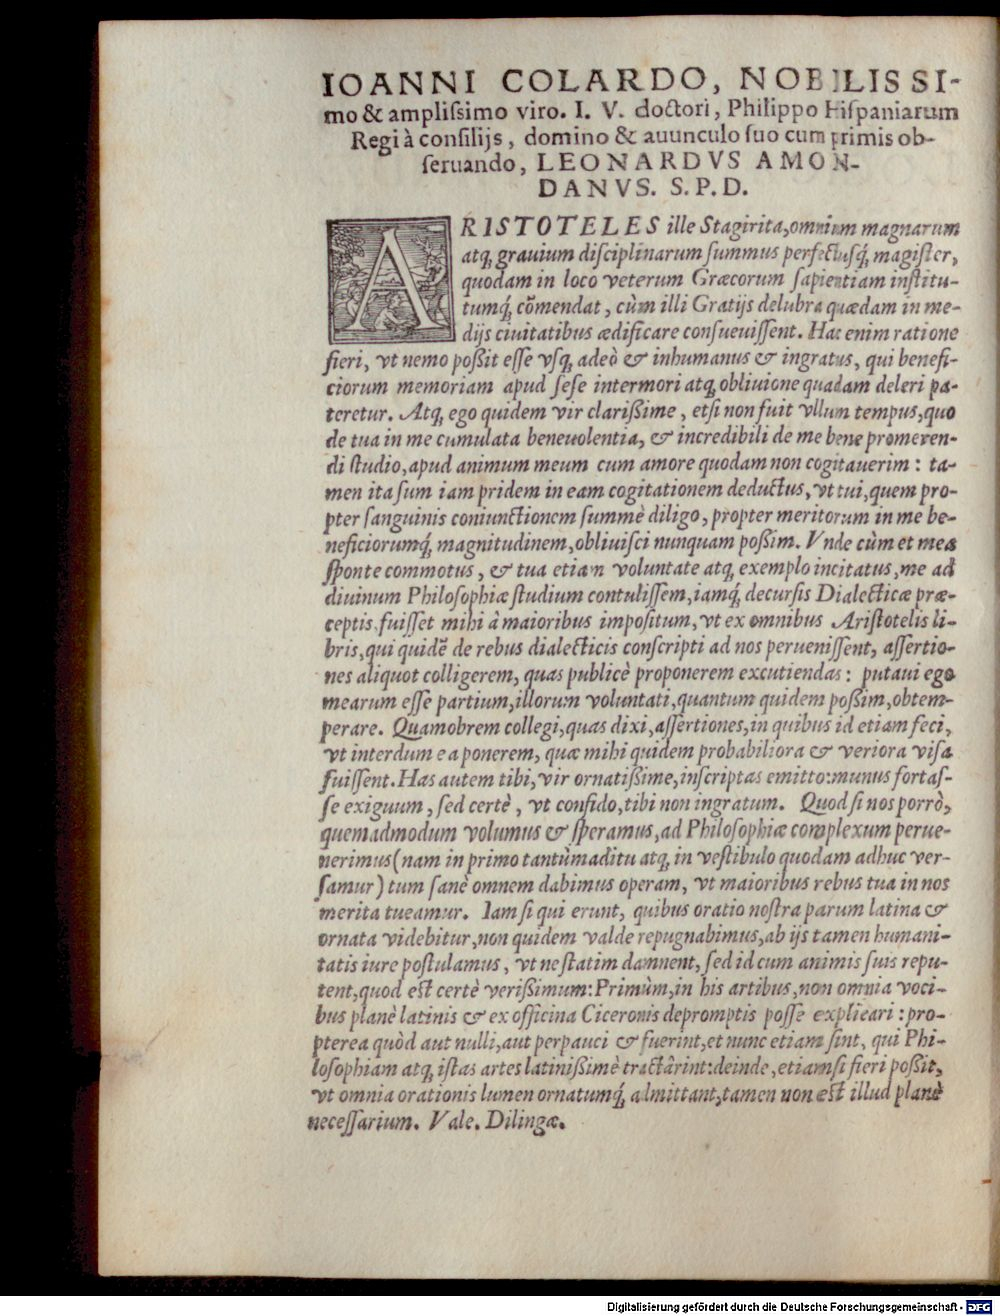 IOANNI COLARDO, NOBILISSI-
mo & ampliſsimo viro. I. V. doctori, Philippo Hiſpaniarum
Regi à conſilijs, domino & auunculo ſuo cum primis ob-
ſeruando, LEONARDVS AMON-
DANVS. S. P. D.
ARISTOTELES ille Stagirita, omnium magnarum
atq; grauium diſciplinarum ſummus perfectuſq́; magiſter,
quodam in loco veterum Græcorum ſapientiam inſtitu-
tumq́; cõmendat, cùm illi Gratijs delubra quædam in me-
dijs ciuitatibus ædificare conſueuiſſent. Hac enim ratione
fieri, vt nemo poßit eſſe vſq; adeò & inhumanus & ingratus, qui benefi-
ciorum memoriam apud ſeſe intermori atq; obliuione quadam deleri pa-
teretur. Atq; ego quidem vir clarißime, etſi non fuit vllum tempus, quo
de tua in me cumulata beneuolentia, & incredibili de me bene promeren-
di ſtudio, apud animum meum cum amore quodam non cogitauerim : ta-
men ita ſum iam pridem in eam cogitationem deductus, vt tui, quem pro-
pter ſanguinis coniunctionem ſummè diligo, propter meritorum in me be-
neficiorumq́; magnitudinem, obliuiſci nunquam poßim. Vnde cùm et mea
ſponte commotus, & tua etiam voluntate atq; exemplo incitatus, me ad
diuinum Philoſophiæ ſtudium contuliſſem, iamq́; decurſis Dialecticæ præ-
ceptis, fuiſſet mihi à maioribus impoſitum, vt ex omnibus Ariſtotelis li-
bris, qui quidẽ de rebus dialecticis conſcripti ad nos perueniſſent, aſſertio-
nes aliquot colligerem, quas publicè proponerem excutiendas : putaui ego
mearum eſſe partium, illorum voluntati, quantum quidem poßim, obtem-
perare. Quamobrem collegi, quas dixi, aſſertiones, in quibus id etiam feci,
vt interdum ea ponerem, quæ mihi quidem probabiliora & veriora viſa
fuiſſent. Has autem tibi, vir ornatißime, inſcriptas emitto: munus fortaſ-
ſe exiguum, ſed certè, vt confido, tibi non ingratum. Quod ſi nos porrò,
quemadmodum volumus & ſperamus, ad Philoſophiæ complexum perue-
nerimus (nam in primo tantùm aditu atq; in veſtibulo quodam adhuc ver-
ſamur) tum ſanè omnem dabimus operam, vt maioribus rebus tua in nos
merita tueamur. Iam ſi qui erunt, quibus oratio noſtra parum latina &
ornata videbitur, non quidem valde repugnabimus, ab ijs tamen humani-
tatis iure poſtulamus, vt ne ſtatim damnent, ſed id cum animis ſuis repu-
tent, quod eſt certè verißimum: Primùm, in his artibus, non omnia voci-
bus planè latinis & ex officina Ciceronis depromptis poſſe explicari : pro-
pterea quòd aut nulli, aut perpauci & fuerint, et nunc etiam ſint, qui Phi-
loſophiam atq; iſtas artes latinißimè tractârint: deinde, etiamſi fieri poßit,
vt omnia orationis lumen ornatumq́; admittant, tamen non eſt illud planè
neceſſarium. Vale. Dilingæ.
Digitalisierung gefördert durch die Deutsche Forschungsgemeinschaft - DFG